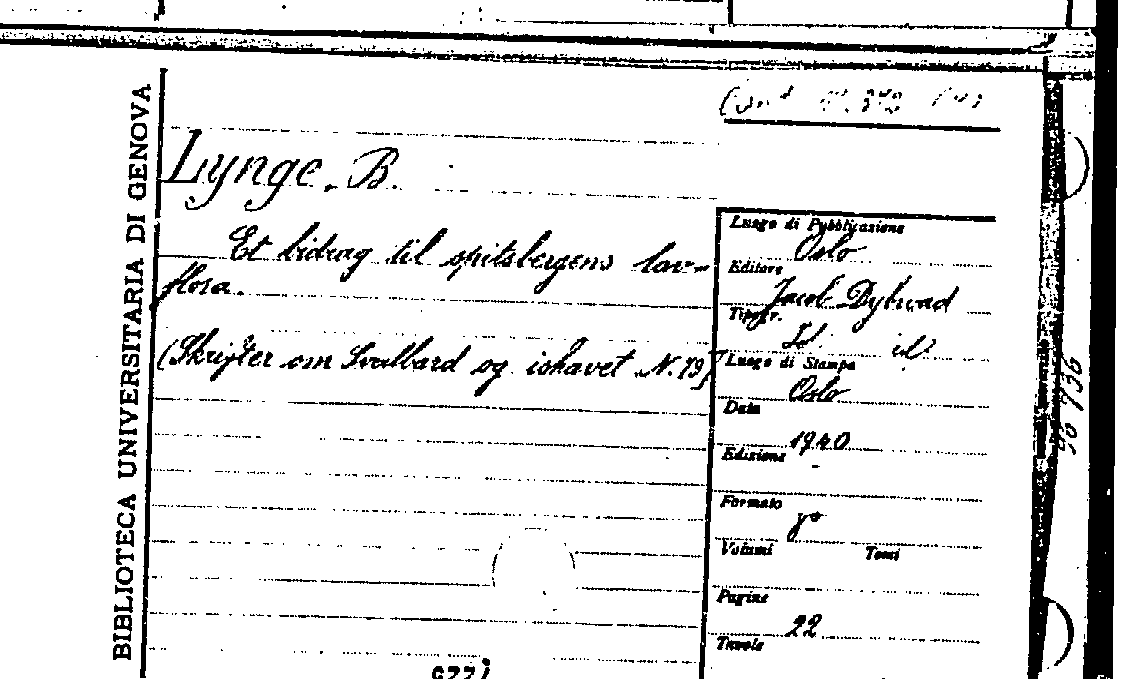 BIBLIOTECA UNIVERSITARIA DI GENOVA
Lynge, B.
Et bidrag til spitsbergens lav-
flora.
(Skrifter om Svalbard og ishavet N. 79)
Luogo di Pubblicazione
Oslo
Editore
Jacob Dybwad
Tipogr.
Id id
Luogo di Stampa
Oslo
Data
1940
Edizione
-
Formato
Volumi Tomi
Pagine
22
Tavole